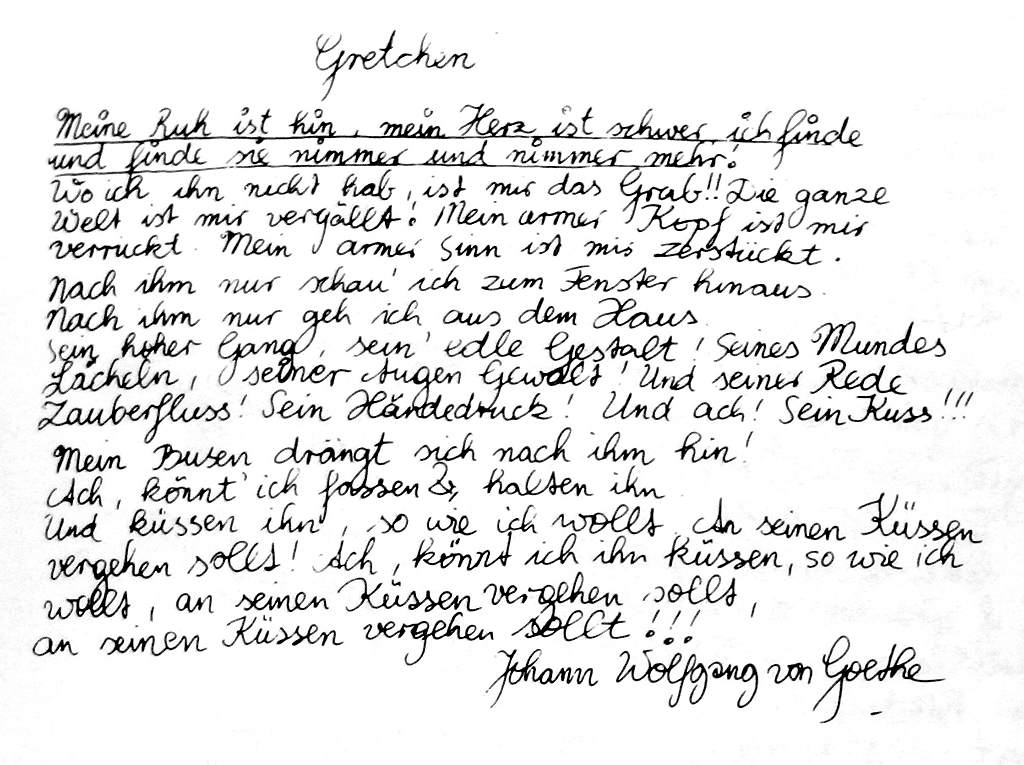 Gretchen
Meine Ruh ist hin, mein Herz ist schwer, ich finde
und finde sie nimmer und nimmer mehr!
Wo ich ihn nicht hab, ist mir das Grab!! Die ganze
Welt ist mir vergällt! Mein armer Kopf ist mir
verrückt. Mein armer Sinn ist mir zerstückt.
Nach ihm nur schau' ich zum Fenster hinaus.
Nach ihm nur geh ich aus dem Haus.
Sein hoher Gang, sein' edle Gestalt! Seines Mundes
Lächeln, seiner Augen Gewalt! Und seiner Rede
Zauberfluss! Sein Händedruck! Und ach! Sein Kuss!!!
Mein Busen drängt sich nach ihm hin!
Ach, könnt' ich fassen & halten ihn
Und küssen ihn, so wie ich wollt An seinen Küssen
vergehen sollt! Ach, könnt ich ihn küssen, so wie ich
wollt, an seinen Küssen vergehen sollt,
an seinen Küssen vergehen sollt!!!
Johann Wolfgang von Goethe